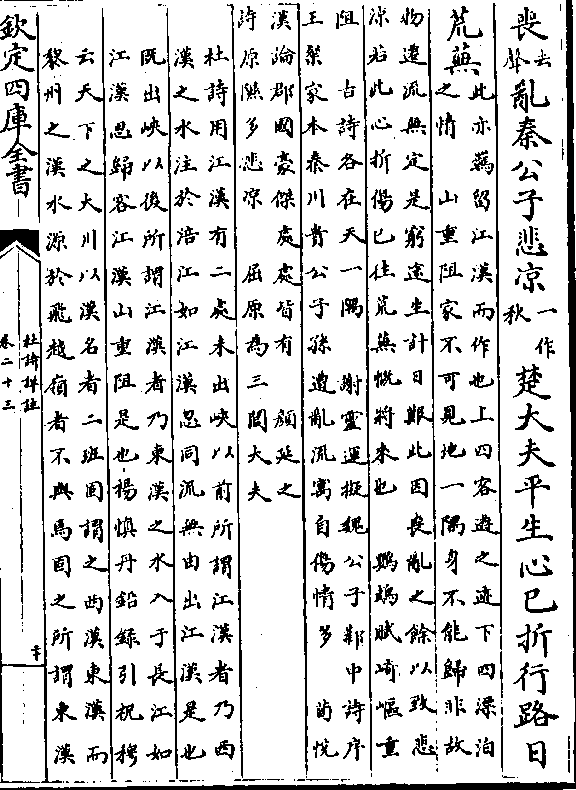 喪去聲亂秦公子悲凉一作秋楚大夫平生心已折行路日
荒蕪此亦羈留江漢而作也上四客遊之迹下四漂泊
之情　山重阻家不可見地一隅身不能歸非故
物遠流無定是窮途生計日艱此因喪亂之餘以致悲
凉若此心折傷已往荒蕪慨將来也　鸚鵡賦崎嶇重
阻　古詩各在天一隅　謝靈運擬魏公子鄴中詩序
王粲家本秦川貴公子孫遭亂流寓自傷情多　荀悦
漢論郡國豪傑處處皆有　顔延之
詩原隰多悲凉　屈原為三閭大夫
杜詩用江漢有二處未出峽以前所謂江漢者乃西
漢之水注於涪江如江漢忽同流無由出江漢是也
既出峽以後所謂江漢者乃東漢之水入于長江如
江漢思歸客江漢山重阻是也楊慎丹鉛錄引祝穆
云天下之大川以漢名者二班固謂之西漢東漢而
黎州之漢水源於飛越嶺者不與焉固之所謂東漢
欽定四庫全書
杜詩詳註
卷二十三